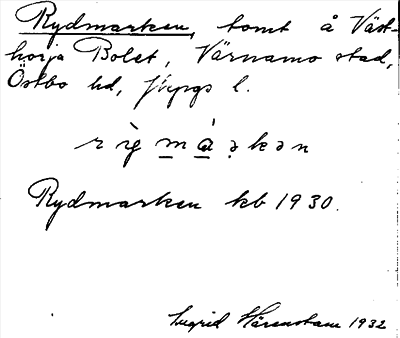 Rydmarken, tomt å Väst-
horja Bolet, Värnamo stad,
Östbo hd, Jkpgs l.
Rydmarken kb 1930.
Ingrid Härenstam 1932